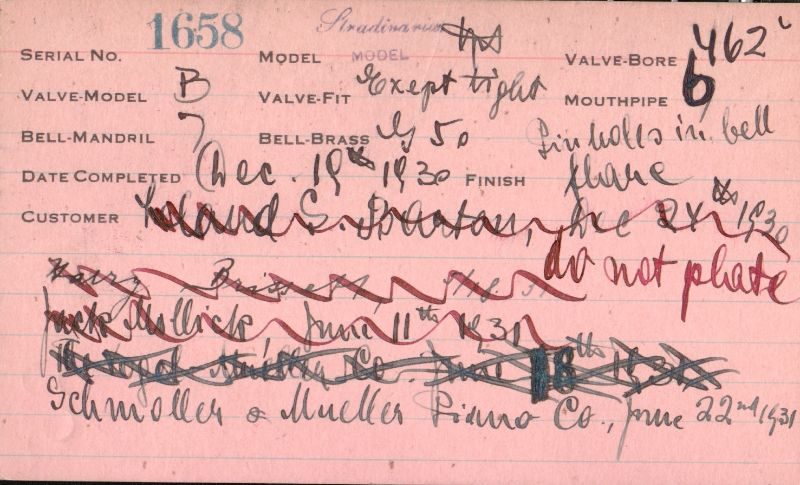 SERIAL NO. 1658 MODEL Stradivarius MODEL VALVE-BORE 462
VALVE-MODEL B VALVE-FIT Exept tight MOUTHPIPE 6
BELL-MANDRIL 7 BELL-BRASS 50 Pinholls in bell
DATE COMPLETED Dec. 19th 1930 FINISH flare
CUSTOMER Leland S. Dec 24th 1930
do not plate
Harry
Jack Mellick, June 11th 1931
Co. June 18th 1931
Schmoller & Mueller Piano Co., June 22nd 1931